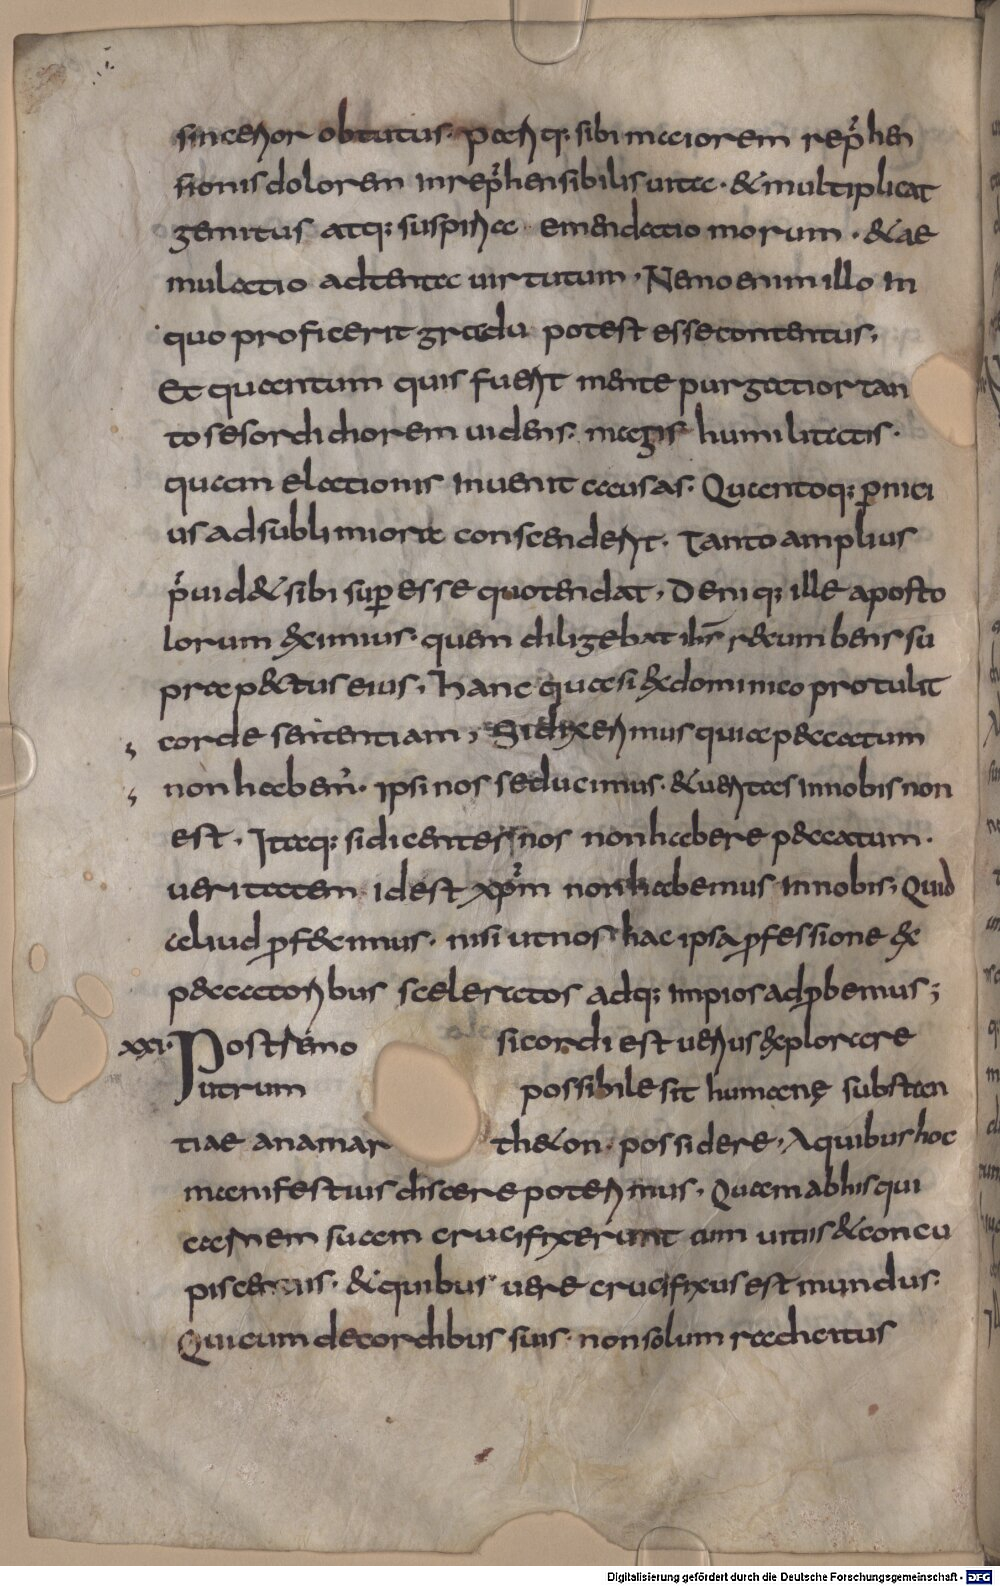 sincerior obtutus. parturitq; sibi maiorem rep̄hen
sionis dolorem inrep̄hensibilis uitae. & multiplicat
gemitus atq; suspiria emendatio morum. & ae
mulatio adtenta uirtutum. Nemo enim illo in
quo proficerit gradu potest esse contentus.
Et quantum quis fuerit mente purgatior tan
to se sordidiorem uidens. magis humilitatis.
quam elationis inuenit causas. Quantoq; p̄nici
us ad sublimiora conscenderit. Tanto amplius
p̄uid& sibi sup̄esse quo tendat. Deniq; ille aposto
lorum eximius. quem diligebat ih̄s recumbens su
pra pectus eius. hanc quasi ex dominico protulit
corde sententiam, Si dixerimus quia peccatum
non habem̄. ipsi nos seducimus. & ueritas in nobis non
est. Itaq; si dicentes nos non habere peccatum.
ueritatem id est xp̄m non habemus in nobis, Quid
aliud p̄fecimus. nisi ut nos hac ipsa p̄fessione ex
peccatoribus sceleratos adq; impios adp̄bemus;
xxi. Postremo si cordi est uerius explorare
utrum possibile sit humanę substan
tiae anamartheton. possidere, A quibus hoc
manifestius discere poterimus. Quam ab his qui
carnem suam crucifixerunt cum uitiis & concu
piscentiis. & quibus uere crucifixus est mundus.
Qui cum de cordibus suis. non solum radicitus
Digitalisierung gefördert durch die Deutsche Forschungsgemeinschaft - DFG